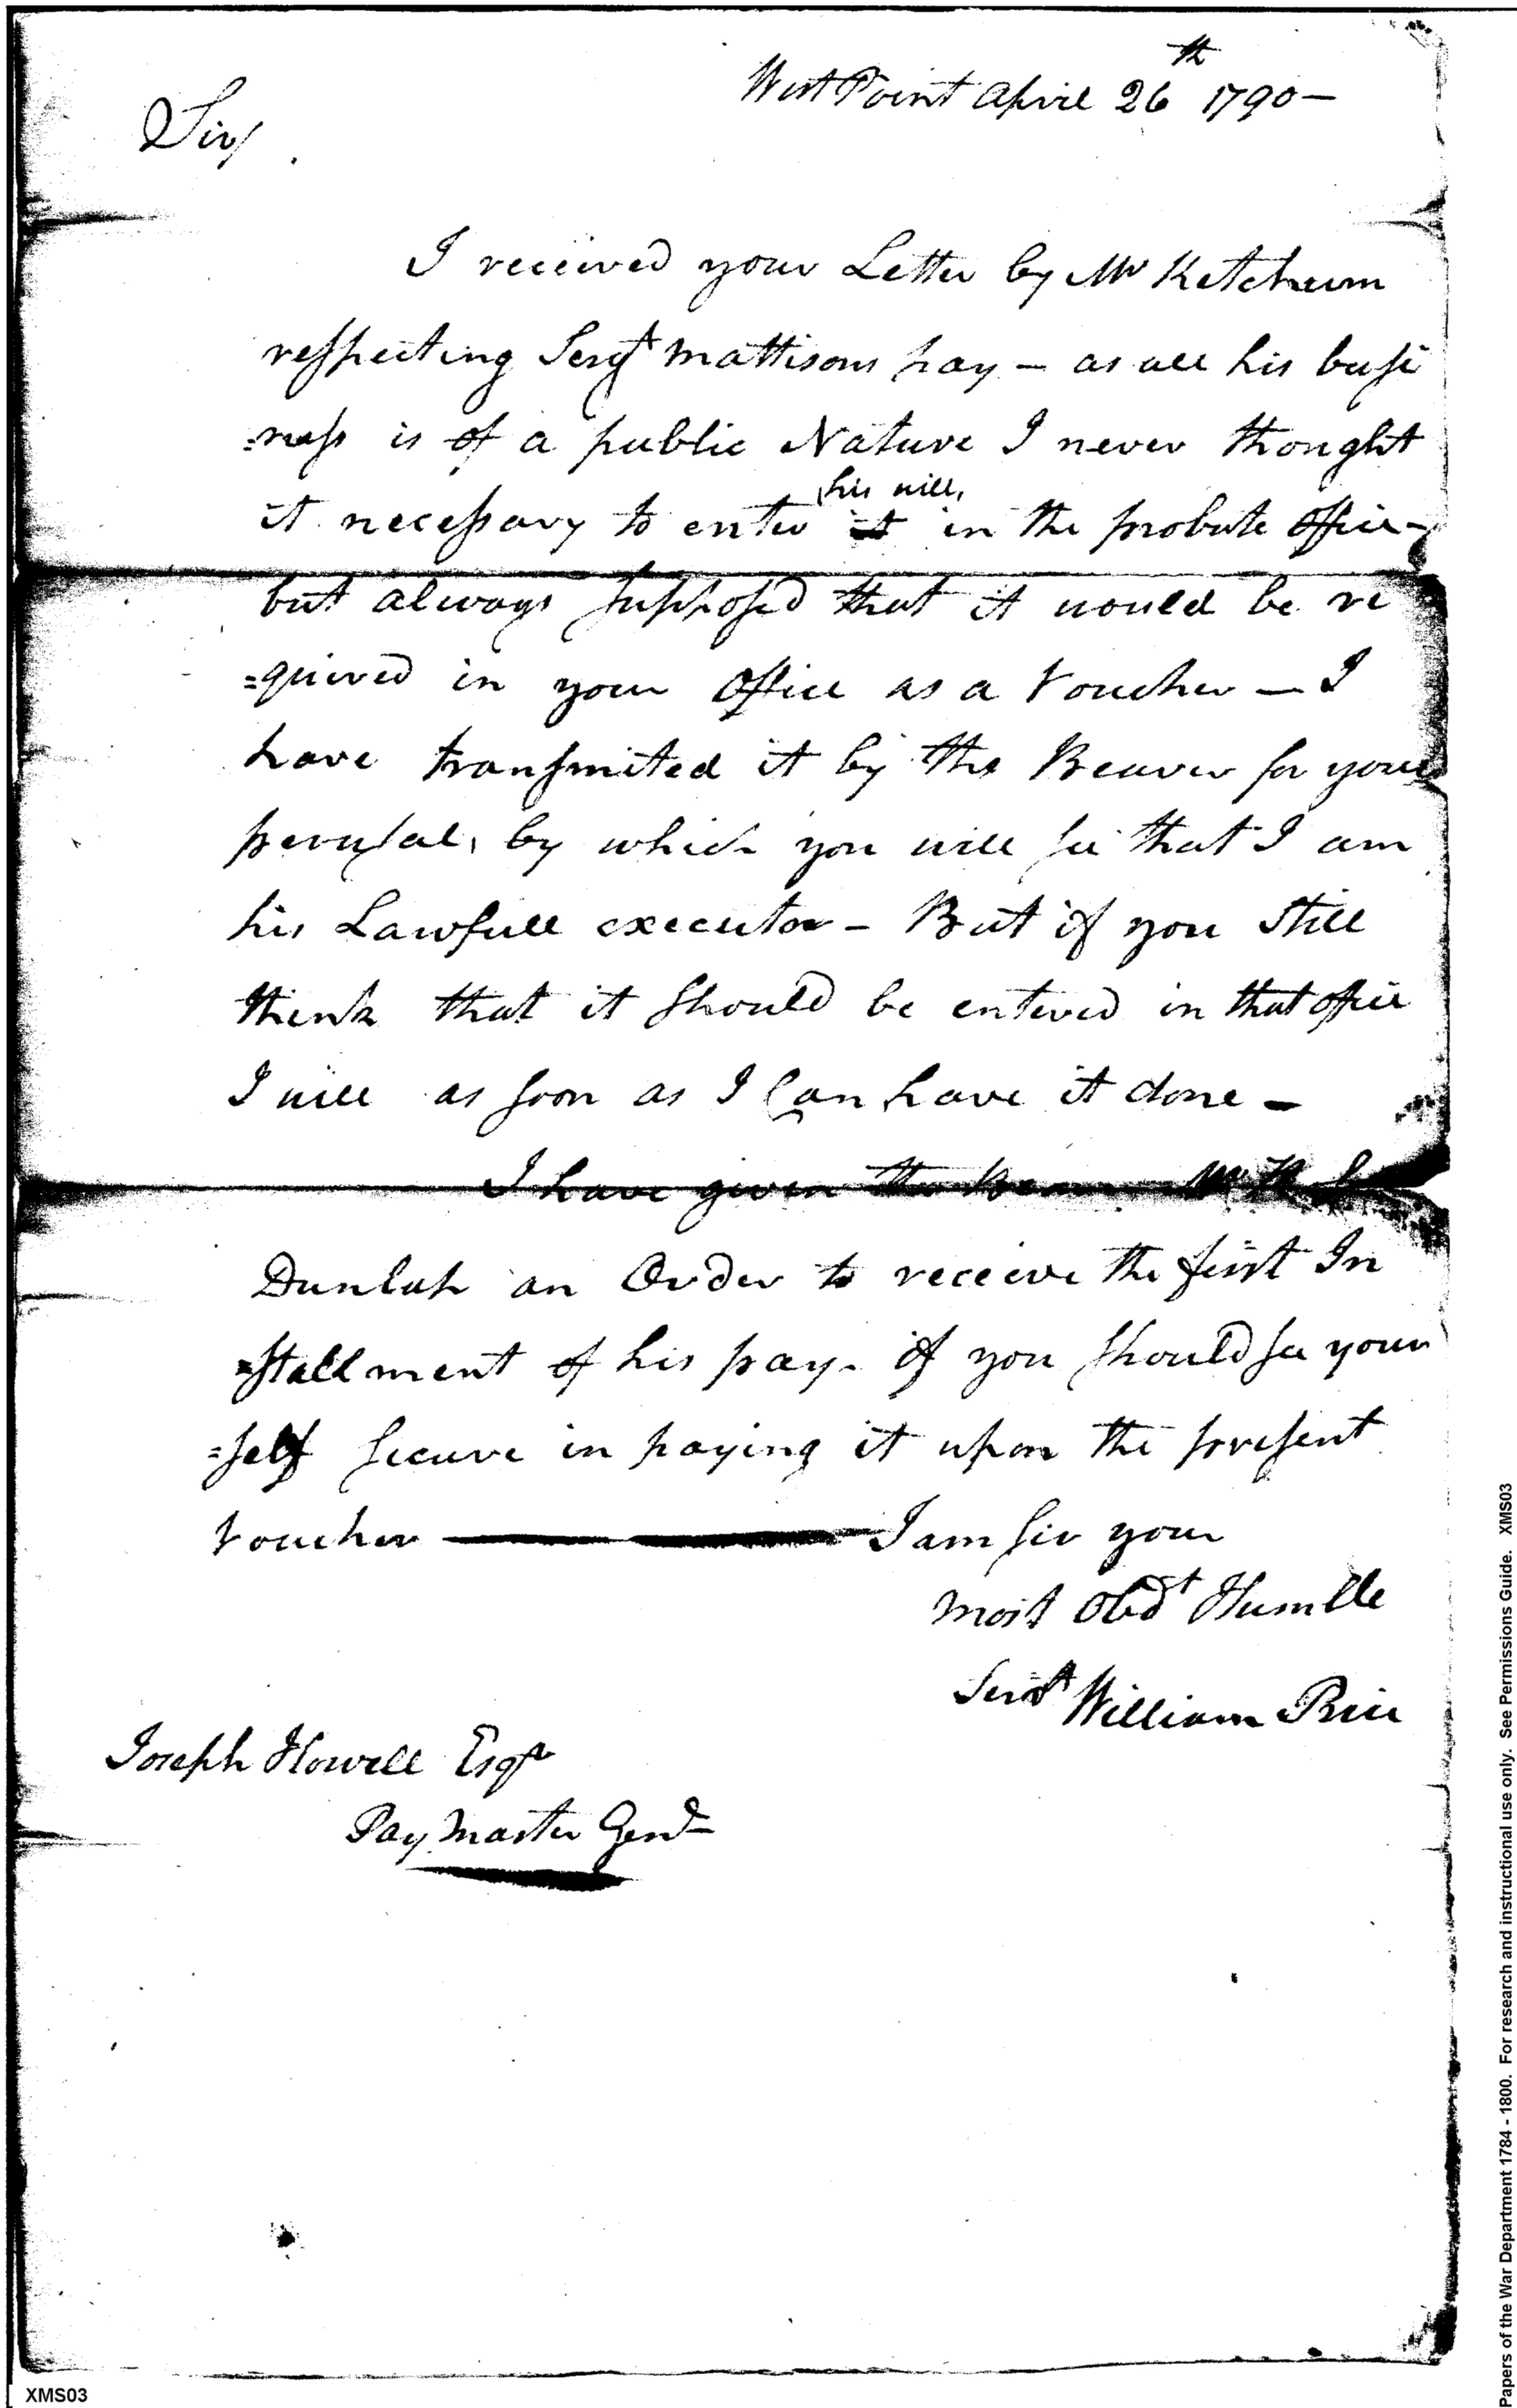 West Point April 26th 1790 —
Sir/
I received your Letter by Mr Ketchum
respecting Sergt Mattisons pay — as all his busi
=ness is of a public Nature I never thought
his will,
it necessary to enter it in the probate office —
but always supposed that it would be re
=quired in your Office as a Voucher — I
have transmited it by the Bearer for your
perusal, by which you will see that I am
his Lawfull executor — But if you Still
think that it Should be entered in that office
I will as soon as I Can have it done —
I have given the Bearer Mr
Dunlap an Order to receive the first In
=stallment of his pay. if you should see your
=self secure in paying it upon the present
Voucher — I am Sir your
most Obdt Humble
Servt William Price
Joseph Howell Esqr
Pay Master Genl
XMS03
Papers of the War Department 1784 - 1800. For research and instructional use only. See Permissions Guide. XMS03